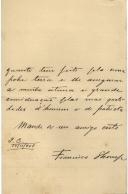 quanto tem feito pela nossa
pobre terra e lhe assegurar
a muita estima e grande
consideração pelas suas quali-
dades d'homem e de patriota
Mande o seu amigo certo
Francisco